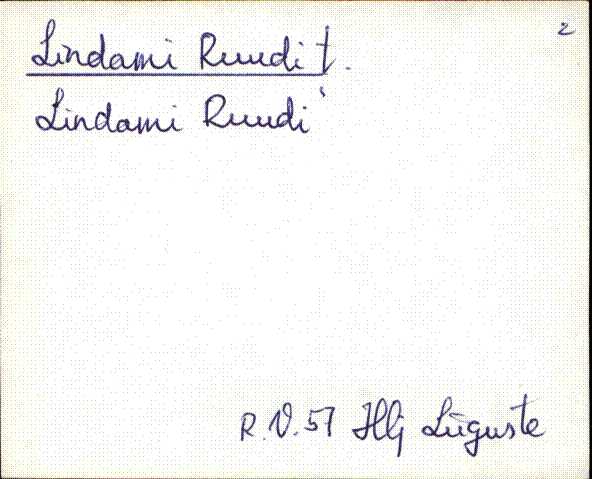 2
Lindami Ruudi t.
Lindami Ruudi`
R. V. 57 Hlj Lüguste